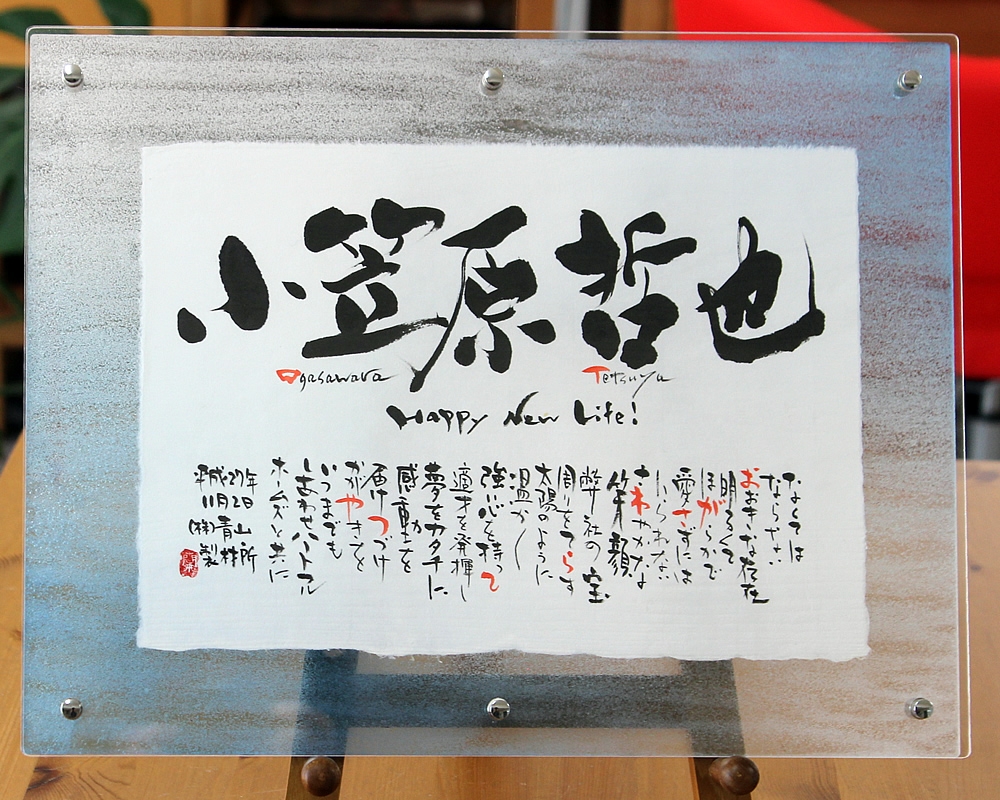 小笠原哲也
Ogasawara Tetsuya
Happy New Life!
なくては
ならない
おおきな存在
明るくて
ほがらかで
愛さずには
いられない
さわやかな
笑顔
弊社の宝
周りをてらす
太陽のように
温かく
強い心を持って
適才を発揮し
夢をカタチに
感動を
届けつづけ
かがやきを
いつまでも
しあわせハートフル
ホームズと共に
平成27年
11月2日
(株)青山
製材所